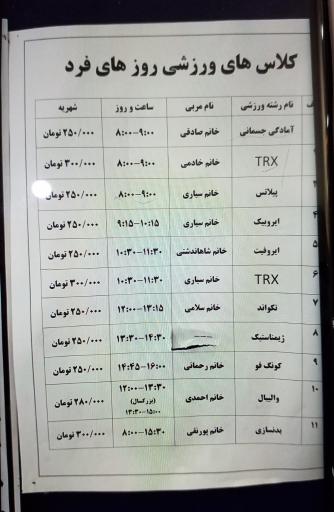 کلاس های ورزشی روز های فرد
نام رشته ورزشی نام مربی ساعت و روز شهریه
آمادگی جسمانی خانم صادقی ۸:۰۰-۹:۰۰ ۲۵۰/۰۰۰ تومان
TRX خانم خادمی ۸:۰۰-۹:۰۰ ۳۰۰/۰۰۰ تومان
۳ پیلاتس خانم سیاری ۸:۰۰-۹:۰۰ ۲۵۰/۰۰۰ تومان
۴ ایروبیک خانم سیاری ۹:۱۵-۱۰:۱۵ ۲۵۰/۰۰۰ تومان
۵ ایروفیت خانم شاهاندشتی ۱۰:۳۰-۱۱:۳۰ ۲۵۰/۰۰۰ تومان
۶ TRX خانم سیاری ۱۰:۳۰-۱۱:۳۰ ۳۰۰/۰۰۰ تومان
۷ تکواندو خانم سلامی ۱۲:۰۰-۱۳:۱۵ ۲۵۰/۰۰۰ تومان
۸ ژیمناستیک ۱۳:۳۰-۱۴:۳۰ ۲۵۰/۰۰۰ تومان
۹ کونگ فو خانم رحمانی ۱۴:۴۵-۱۶:۰۰ ۲۵۰/۰۰۰ تومان
۱۰ والیبال خانم احمدی ۱۲:۰۰-۱۳:۳۰ ۲۸۰/۰۰۰ تومان
(بزرگسال)
۱۳:۳۰-۱۵:۰۰
۱۱ بدنسازی خانم پورتقی ۸:۰۰-۱۵:۳۰ ۳۰۰/۰۰۰ تومان